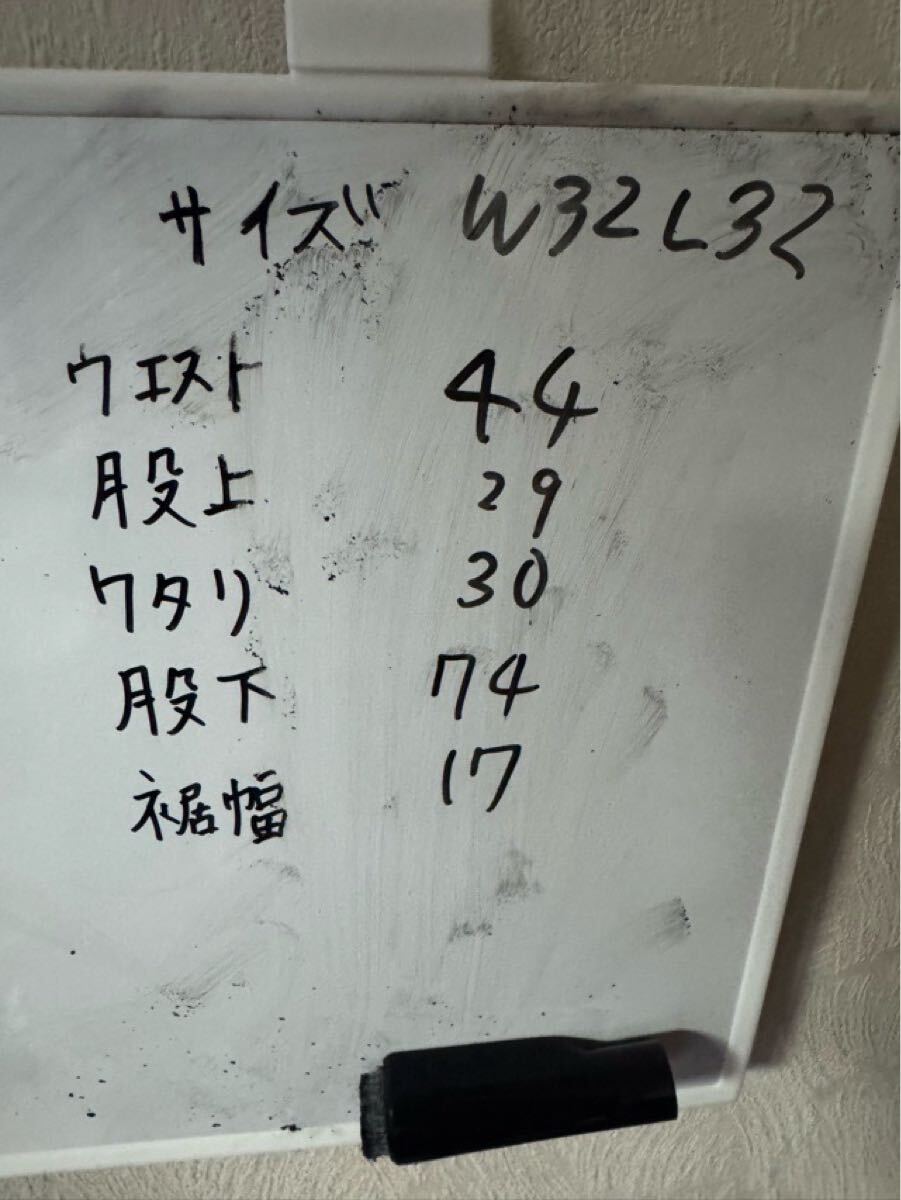 サイズ W32 L32
ウエスト 44
股上 29
ワタリ 30
股下 74
裾幅 17